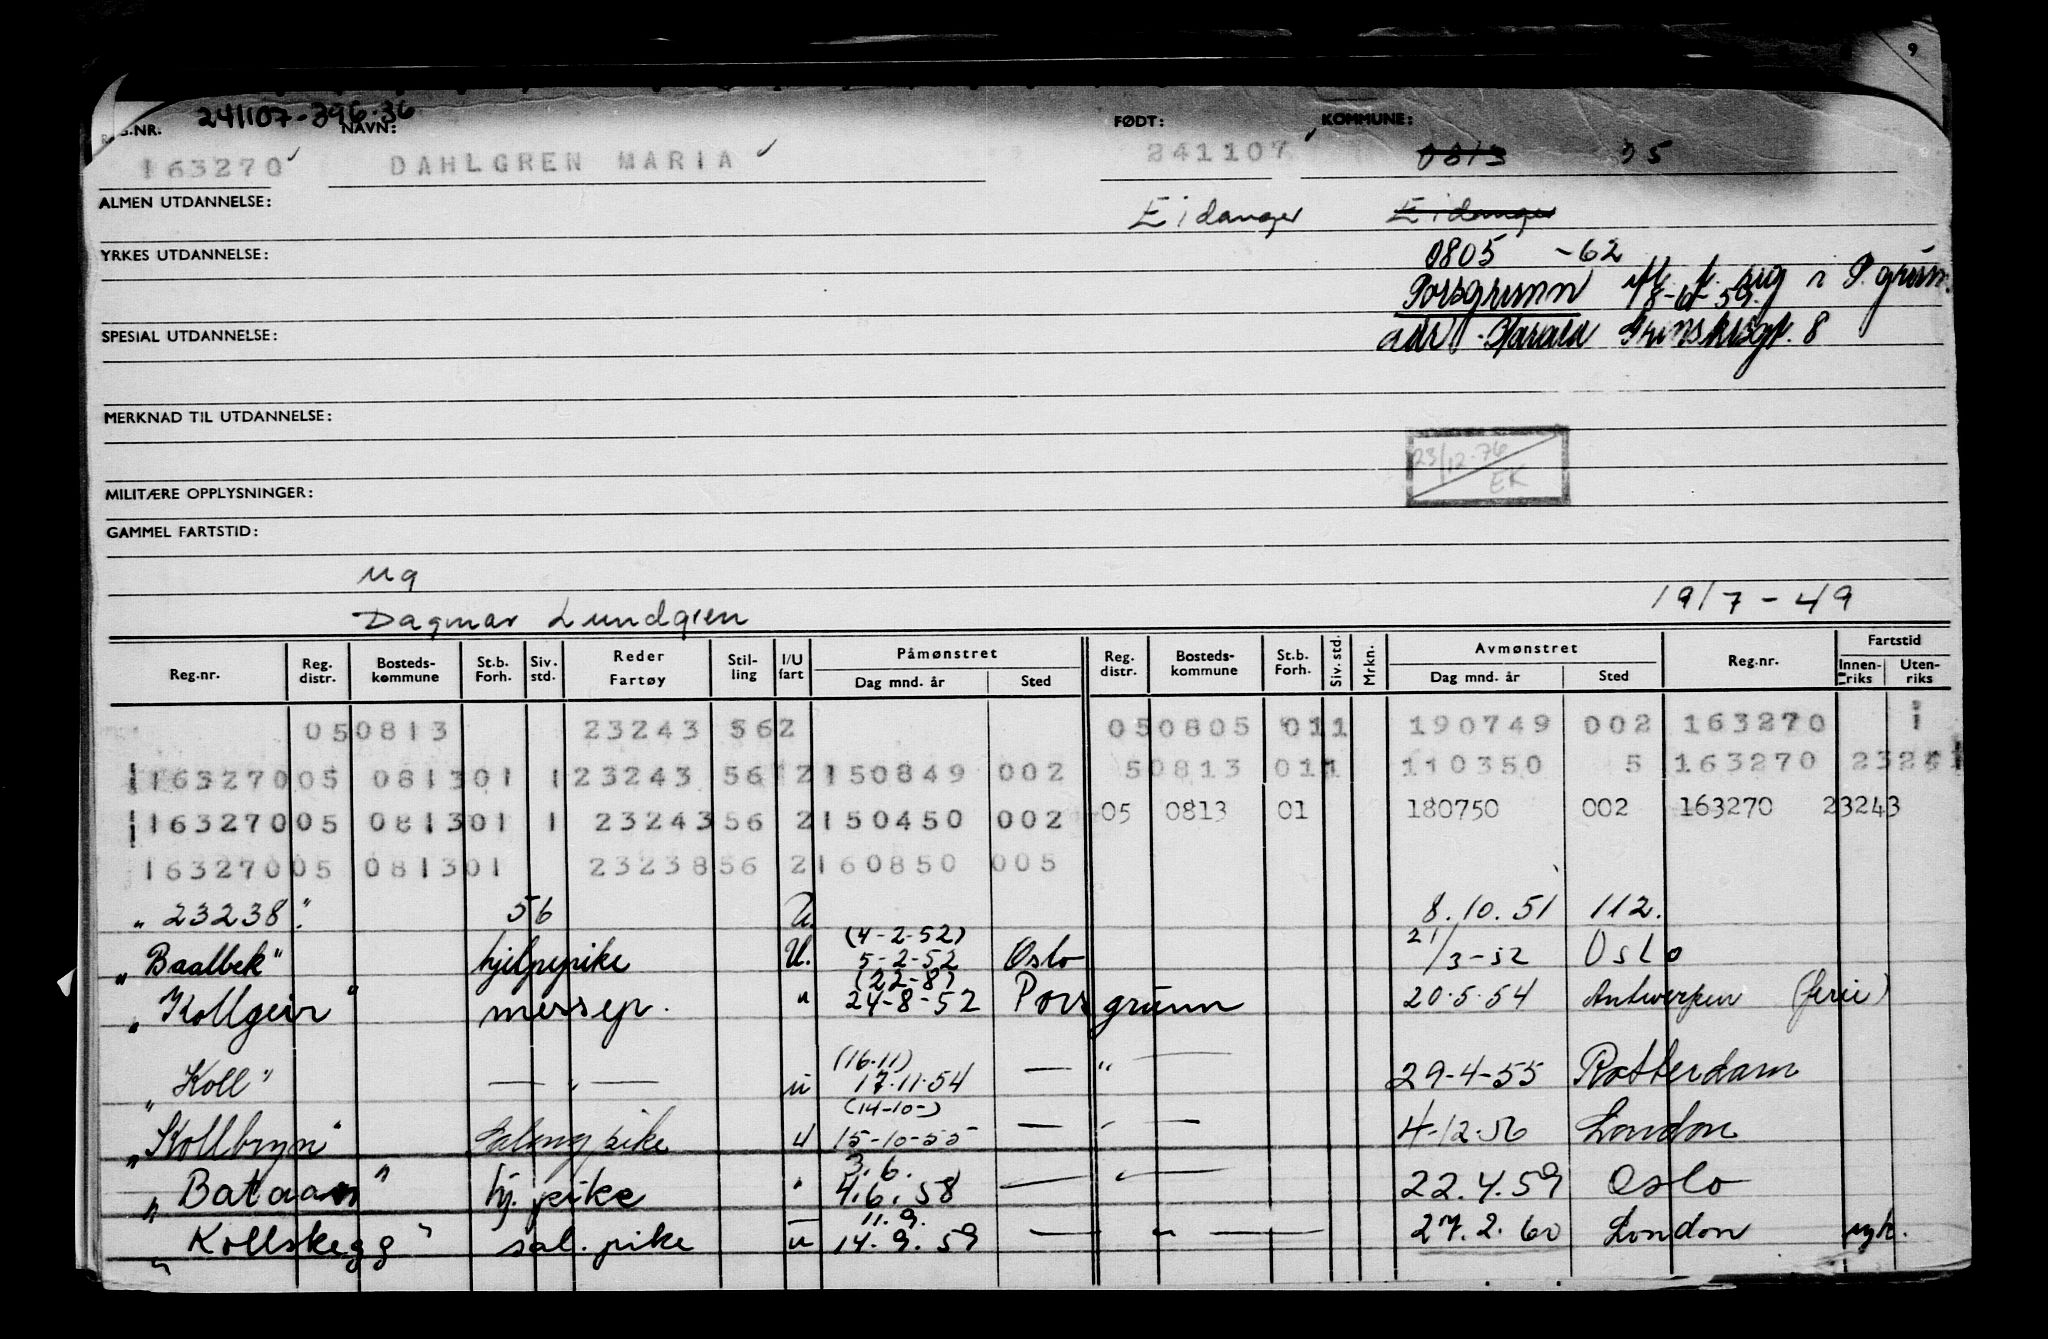 9
241107-396.36
REG.NR. NAVN: FØDT: KOMMUNE:
163270 DAHLGREN MARIA 241107 0813 35
ALMEN UTDANNELSE: Eidanger Eidanger
YRKES UTDANNELSE: 0805 -62
Porsgrunn i P.grunn.
18-6-59.
SPESIAL UTDANNELSE: adr. Harald 8
MERKNAD TIL UTDANNELSE:
23/12.76
EK
MILITÆRE OPPLYSNINGER:
GAMMEL FARTSTID:
ug
Dagmar Lundgren 19/7-49
Reg.nr. Reg. distr. Bosteds-kommune St.b. Forh. Siv. std. Reder Fartøy Stil-ling I/U fart Påmønstret Dag mnd. år Sted Reg. distr. Bosteds-kommune St.b. Forh. Siv. std. Mrkn. Avmønstret Dag mnd. år Sted Reg.nr. Fartstid Innen-riks Uten-riks
050813 23243 562 050805 011 190749 002 163270
16327005 081301 1 23243 56 2 150849 002 50813 011 110350 5 163270 2324
16327005 081301 1 23243 56 2 150450 002 05 0813 01 180750 002 163270 23243
16327005 081301 23238 56 2 160850 005
" 23238 " 56 U. 8.10.51 112.
(4-2-52)
"Baalbek" hjelpepike U. 5-2-52 Oslo 21/3-52 Oslo
(22-8)
"Kollgeir" messep. " 24-8-52 Porsgrunn 20.5.54 Antwerpen (ferie)
(16.11)
"Koll" — " — u 17.11.54 — " — 29-4-55 Rotterdam
(14-10-)
"Kollbryn" Salongpike u 15-10-55 — " — 4-12-56 London
3.6.
"Bataan" hj. pike " 4.6.58 — " — 22.4.59 Oslo
11.9.
"Kollskegg" sal. pike u 14.9.59 — " — 27.2.60 London syk.